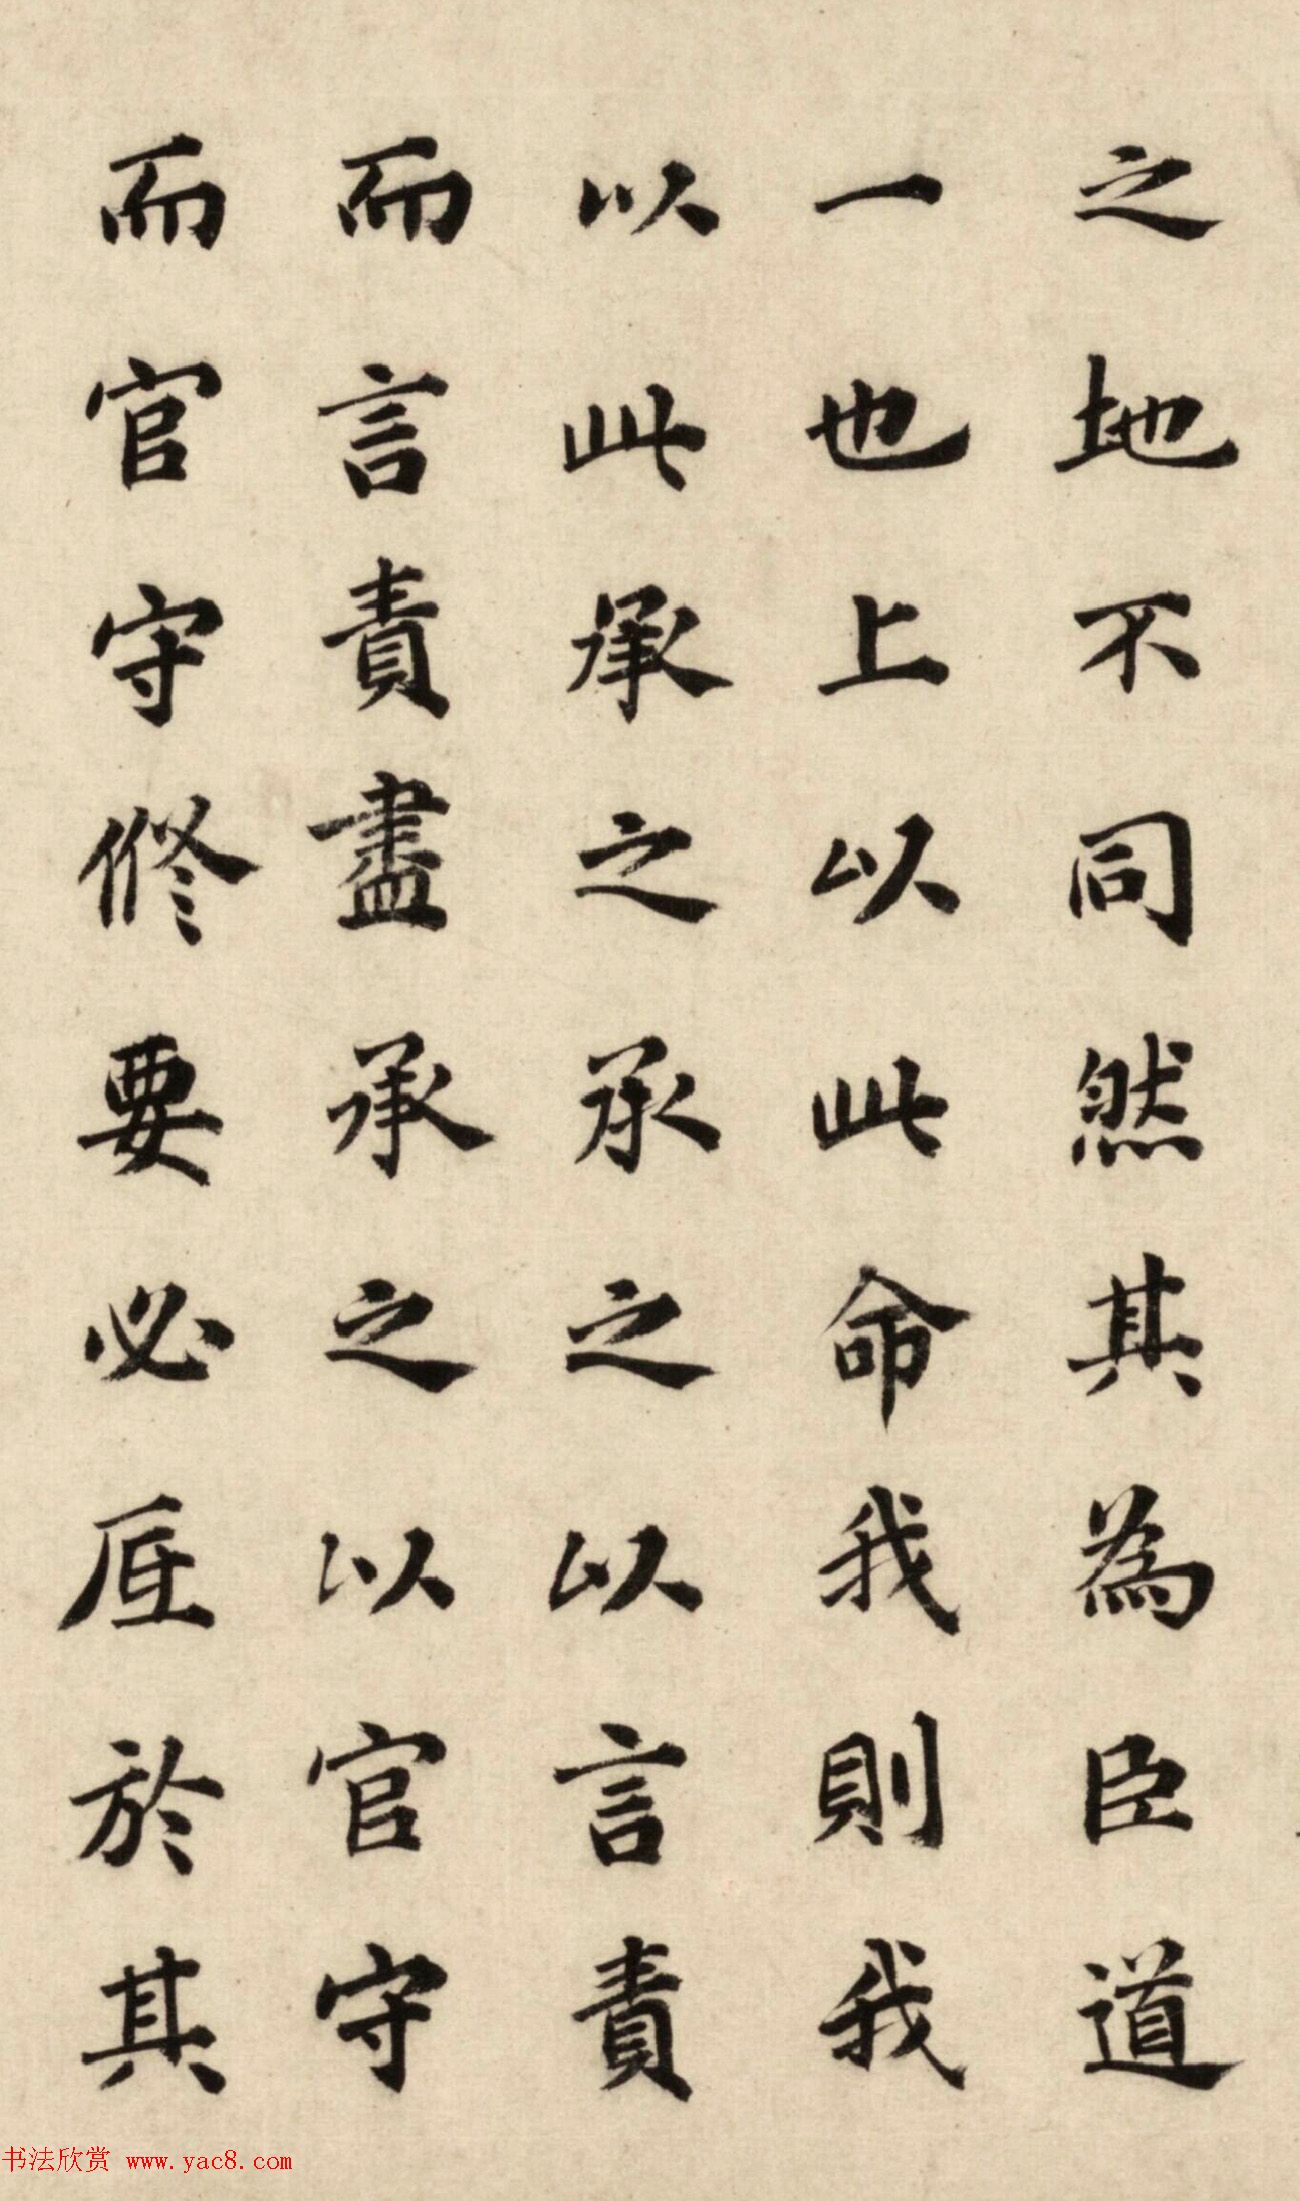 之地不同然其為臣道
一也上以此命我則我
以此承之承之以言責
而言責盡承之以官守
而官守修要必厎於其
书法欣赏 www.yac8.com